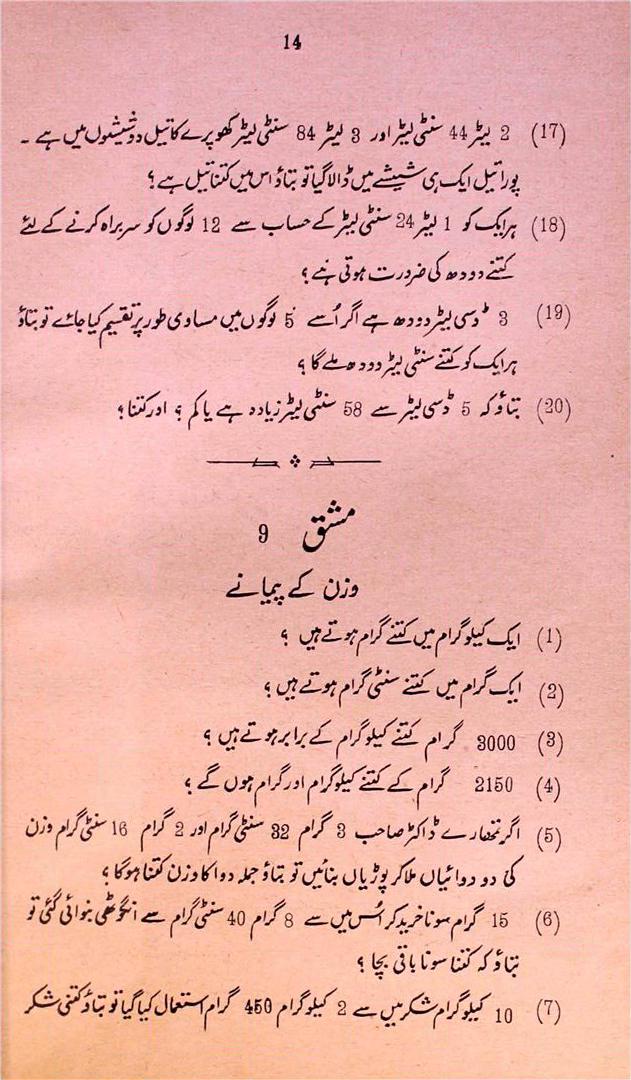 14
(17) 2 لیٹر 44 سنٹی لیٹر اور 3 لیٹر 84 سنٹی لیٹر کھوپرے کا تیل دو شیشوں میں ہے ۔
پورا تیل ایک ہی شیشے میں ڈالا گیا تو بتاؤ اس میں کتنا تیل ہے ؟
(18) ہر ایک کو 1 لیٹر 24 سنٹی لیٹر کے حساب سے 12 لوگوں کو سربراہ کرنے کے لئے
کتنے دودھ کی ضرورت ہوتی ہے ؟
(19) 3 ڈسی لیٹر دودھ ہے اگر اُسے 5 لوگوں میں مساوی طور پر تقسیم کیا جائے تو بتاؤ
ہر ایک کو کتنے سنٹی لیٹر دودھ ملے گا ؟
(20) بتاؤ کہ 5 ڈسی لیٹر سے 58 سنٹی لیٹر زیادہ ہے یا کم ؟ اور کتنا ؟
مشق 9
وزن کے پیمانے
(1) ایک کیلو گرام میں کتنے گرام ہوتے ہیں ؟
(2) ایک گرام میں کتنے سنٹی گرام ہوتے ہیں ؟
(3) 3000 گرام کتنے کیلو گرام کے برابر ہوتے ہیں ؟
(4) 2150 گرام کے کتنے کیلو گرام اور گرام ہوں گے ؟
(5) اگر تمھارے ڈاکٹر صاحب 3 گرام 32 سنٹی گرام اور 2 گرام 16 سنٹی گرام وزن
کی دو دوائیاں ملا کر پوڑیاں بنائیں تو بتاؤ جملہ دوا کا وزن کتنا ہوگا ؟
(6) 15 گرام سونا خرید کر اُس میں سے 8 گرام 40 سنٹی گرام سے انگوٹھی بنوائی گئی تو
بتاؤ کہ کتنا سونا باقی بچا ؟
(7) 10 کیلو گرام شکر میں سے 2 کیلو گرام 450 گرام استعمال کیا گیا تو بتاؤ کتنی شکر